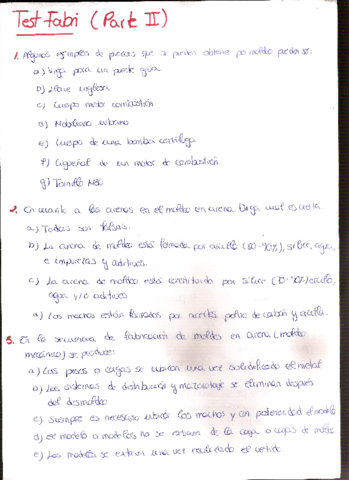 Test Fabri (Parte II)
1. Algunos ejemplos de piezas que se pueden obtener por moldeo pueden ser:
a) Viga para un puente grúa
b) Llave inglesa
c) Cuerpo motor combustión
d) Mobiliario urbano
e) Cuerpo de una bomba centrífuga
f) Cigüeñal de un motor de combustión.
g) Tornillo
2. En cuanto a las arenas en el moldeo en arena. Diga cual es cierta.
a) Todas son falsas.
b) La arena de moldeo está formada por arcilla sílice, agua,
e impurezas y aditivos.
c) La arena de moldeo está constituida por sílice arcilla,
agua y/o aditivos
d) Los machos están formados por aceites, polvo de carbón y arcilla.
3. En la secuencia de fabricación de moldes en arena (moldeo
mecánico) se produce:
a) Los pesos o cargas se usaron una vez solidificado el metal
b) Los sistemas de distribución y mazarotaje se eliminan después
del desmoldeo
c) Siempre es necesario ubicar los machos y con posterioridad el modelo
d) El modelo o modelos no se extraen de la caja o cajas de moldeo
e) Los modelos se extraen una vez realizado el vertido.